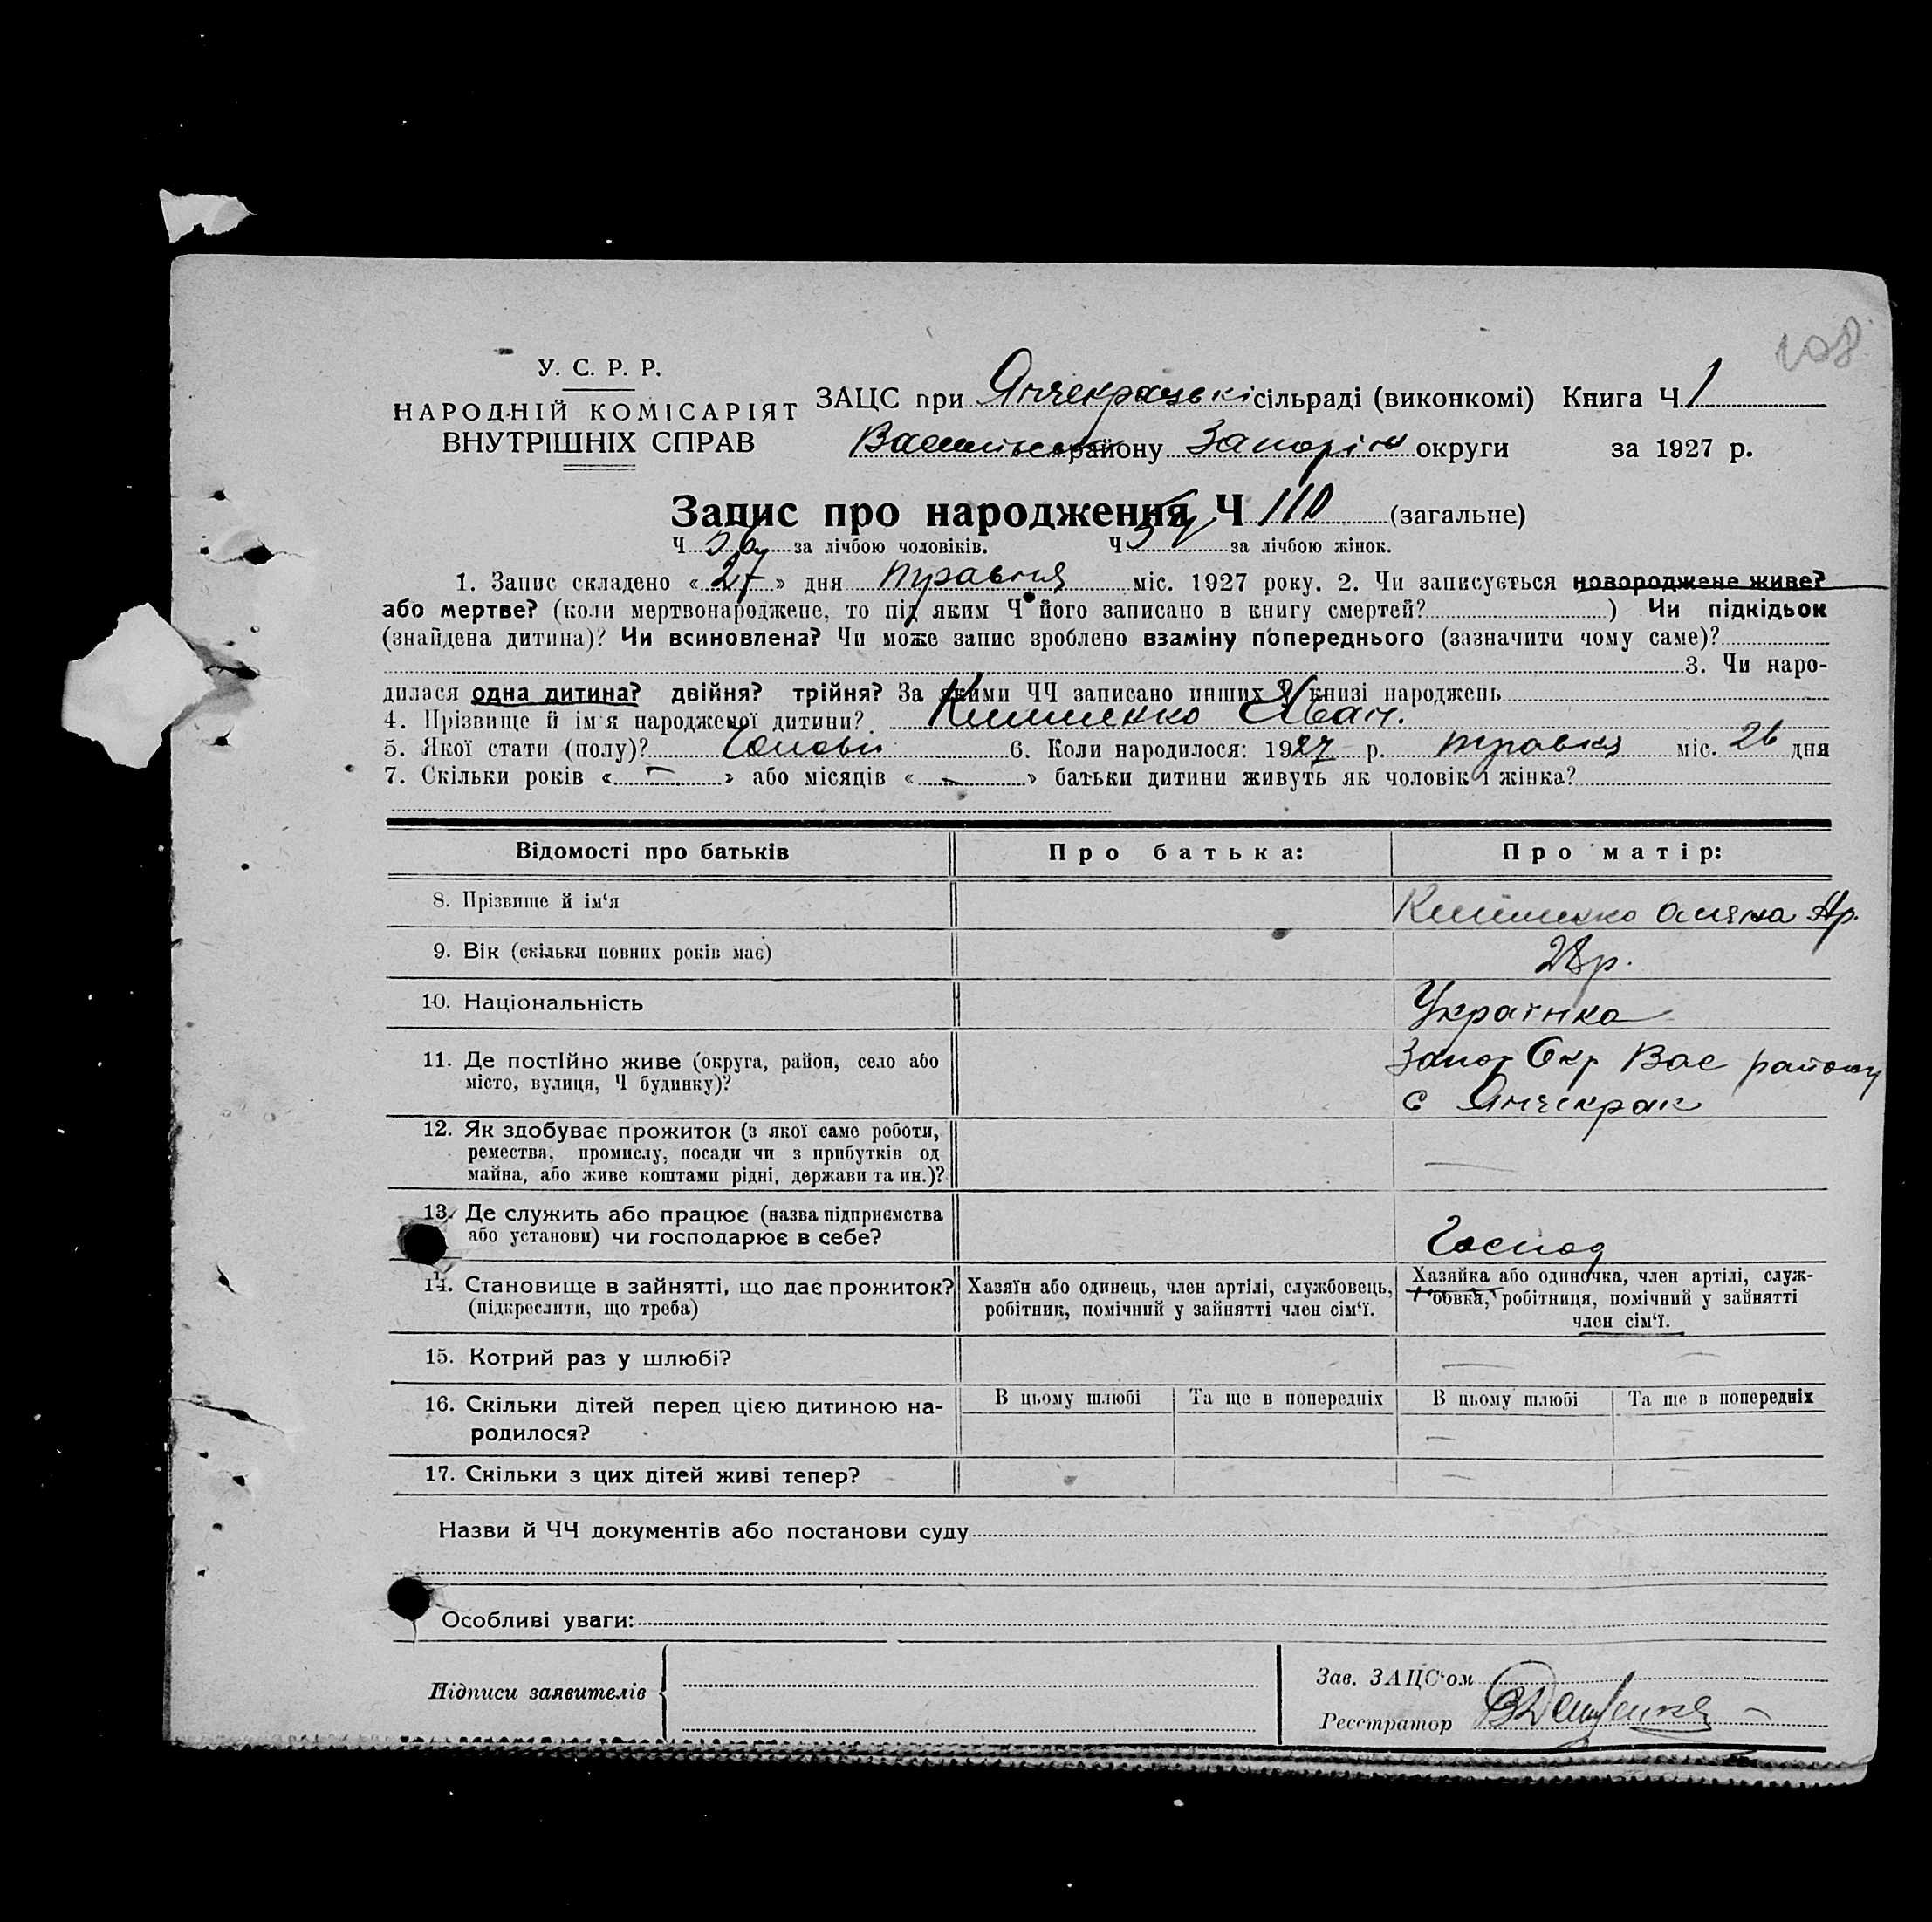 108
У. С. Р. Р.
НАРОДНІЙ КОМІСАРІЯТ
ВНУТРІШНІХ СПРАВ
ЗАЦС при Янчекрацькі сільраді (виконкомі) Книга Ч 1
району Запоріж округи за 1927 р.
Запис про народження Ч 110 (загальне)
Ч 56 за лічбою чоловіків. Ч 54 за лічбою жінок.
1. Запис складено « 27 » дня травня міс. 1927 року. 2. Чи записується новороджене живе?
або мертве? (коли мертвонароджене, то під яким Ч його записано в книгу смертей? ) Чи підкідьок
(знайдена дитина)? Чи всиновлена? Чи може запис зроблено взаміну попереднього (зазначити чому саме)?
3. Чи наро-
дилася одна дитина? двійня? трійня? За якими ЧЧ записано инших у книзі народжень
4. Прізвище й ім'я народженої дитини? Іван.
5. Якої стати (полу)? Чолові 6. Коли народилося: 1927 р. травня міс. 26 дня
7. Скільки років « — » або місяців « — » батьки дитини живуть як чоловік і жінка?
Відомості про батьків Про батька: Про матір:
8. Прізвище й ім‘я
9. Вік (скільки повних років має) 28 р.
10. Національність Українка
11. Де постійно живе (округа, район, село або
місто, вулиця, Ч будинку)?
Запор Окр Вас району
с Янчекрак
12. Як здобуває прожиток (з якої саме роботи,
ремества, промислу, посади чи з прибутків од
майна, або живе коштами рідні, держави та ин.)? —
13. Де служить або працює (назва підприємства
або установи) чи господарює в себе? Господ
14. Становище в зайнятті, що дає прожиток?
(підкреслити, що треба)
Хазяїн або одинець, член артілі, службовець,
робітник, помічний у зайнятті член сім‘ї.
Хазяйка або одиночка, член артілі, служ-
бовка, робітниця, помічний у зайнятті
член сім‘ї.
15. Котрий раз у шлюбі? — —
16. Скільки дітей перед цією дитиною на-
родилося?
В цьому шлюбі Та ще в попередніх В цьому шлюбі Та ще в попередніх
— —
17. Скільки з цих дітей живі тепер? — —
Назви й ЧЧ документів або постанови суду
Особливі уваги:
Підписи заявителів
Зав. ЗАЦС‘ом
Реєстратор